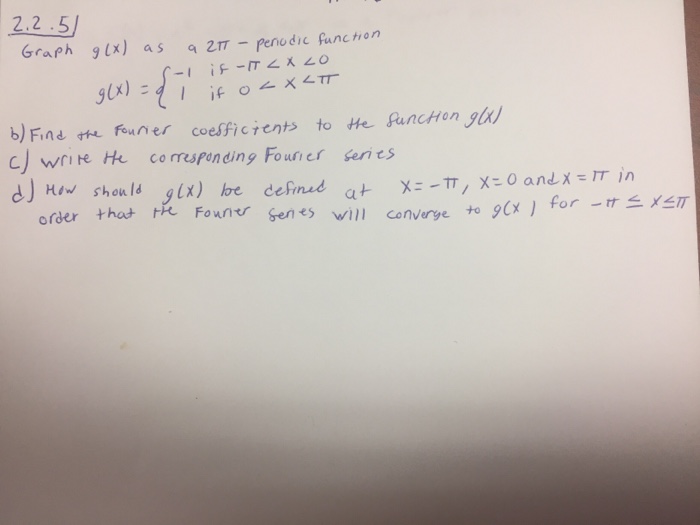 2.2.5)
Graph g(x) as a 2π - periodic function
g(x) = { -1 if -π < x < 0
1 if 0 < x < π
b) Find the Fourier coefficients to the function g(x)
c) write the corresponding Fourier series
d) How should g(x) be defined at x = -π, x = 0 and x = π in
order that the Fourier series will converge to g(x) for -π ≤ x ≤ π